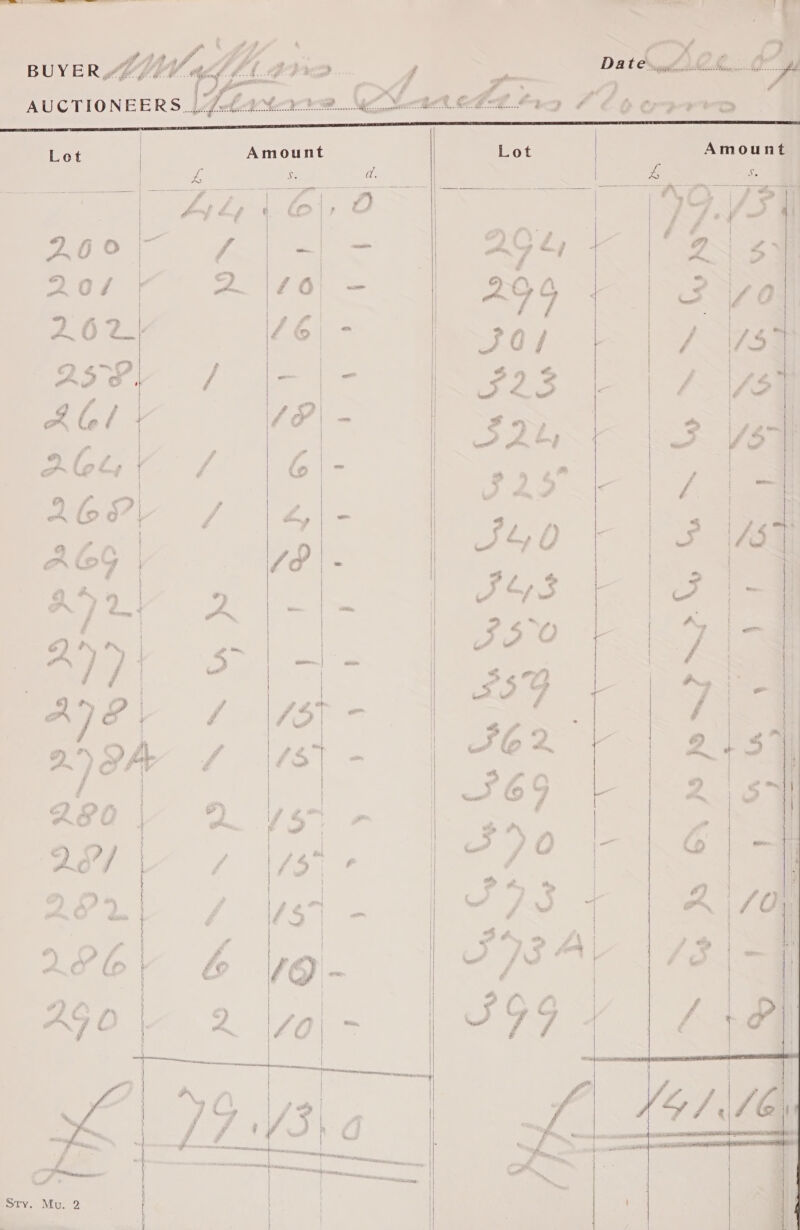 BUYER Date Dec.
AUCTIONEERS Stevens Auction Rooms
Lot Amount Lot Amount
£ s. d. £ s.
44 . 6 . 0 79.13
200 1 - - 294 2 5
201 2 10 - 299 3 10
202 16 - 301 1 15
258 1 - - 323 1 15
261 18 - 324 3 15
264 1 6 - 325 1 -
268 1 4 - 340 3 15
269 18 - 343 3 -
272 2 - - 350 7 -
277 5 - - 359 7 -
278 1 15 - 362 2 . 5
278A 1 15 - 369 2 5
280 2 15 - 370 6 -
281 1 15 - 373 2 10
282 1 15 - 373A 13 -
286 6 10 - 399 1 . 8
290 2 10 -
£ 79 . 13 . 0 £ 141 . 16
Sty. Mu. 2